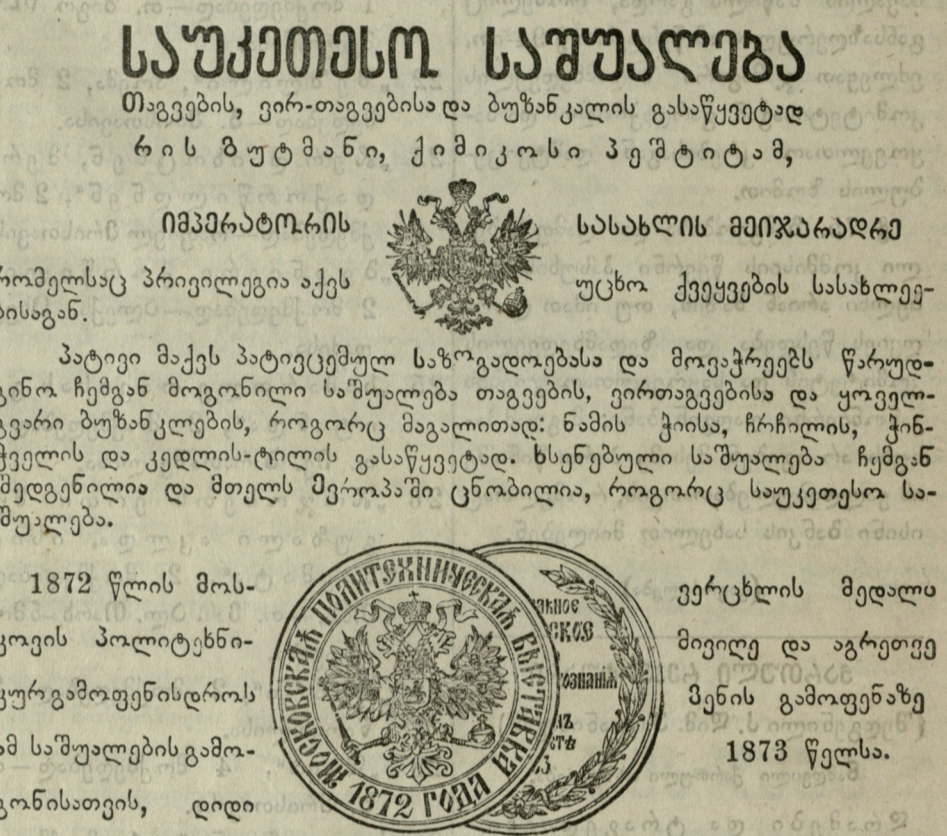 საუკეთესო საშუალება
თაგვების, ვირ-თაგვებისა და ბუზანკალის გასაწყვეტად
რის გუტმანი, ქიმიკოსი პეშტიტამ,
იმპერატორის სასახლის მეიჯარადრე
რომელსაც პრივილეგია აქვს უცხო ქვეყვების სასახლეე-
ბისაგან.
პატივი მაქვს პატივცემულ საზოგადოებასა და მოვაჭრეებს წარუდ-
გინო ჩემგან მოგონილი საშუალება თაგვების, ვირთაგვებისა და ყოველ-
გვარი ბუზანკლების, როგორც მაგალითად: ნამის ჭიისა, ჩრჩილის, ჭინ-
ჭველის და კედლის-ტილის გასაწყვეტად. ხსენებული საშუალება ჩემგან
შედგენილია და მთელს ევროპაში ცნობილია, როგორც საუკეთესო სა-
შუალება.
1872 წლის მოს-
კოვის პოლიტეხნი-
კურ გამოფენის დროს
ამ საშუალების გამო-
გონისათვის, დიდი
МОСКОВСКАѦ ПОЛИТЕХНИЧЕСКАѦ ВЫСТАВКА
1872 ГОДА
ვერცხლის მედალი
მივიღე და აგრეთვე
ვენის გამოფენაზე
1873 წელსა.